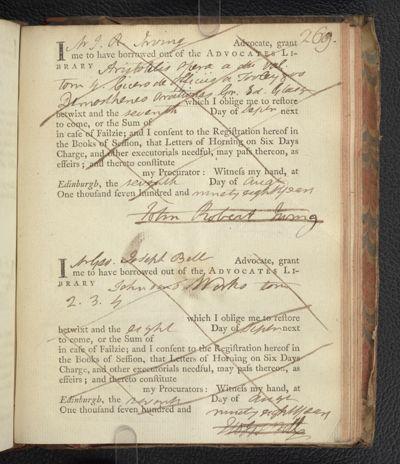 269.
I Mr J. R. Irving Advocate, grant
me to have borrowed out of the ADVOCATES LI-
BRARY Aristotelis opera a du Val
tom 4. Cicero de officiis a
Demosthenes Orationes Gr. Ed.
which I oblige me to restore
betwixt and the seventh Day of Septr next
to come, or the Sum of
in case of Failzie; and I consent to the Registration hereof in
the Books of Session, that Letters of Horning on Six Days
Charge, and other executorials needful, may pass thereon, as
effeirs; and thereto constitute
my Procurator: Witness my hand, at
Edinburgh, the seventh Day of Augt
One thousand seven hundred and ninety eight years
John Robert Irving
I Mr Geo. Joseph Bell Advocate, grant
me to have borrowed out of the ADVOCATES LI-
BRARY Johnsons Works tom
2. 3. 4
which I oblige me to restore
betwixt and the eight Day of Septr next
to come, or the Sum of
in case of Failzie; and I consent to the Registration hereof in
the Books of Session, that Letters of Horning on Six Days
Charge, and other executorials needful, may pass thereon, as
effeirs; and thereto constitute
my Procurators: Witness my hand, at
Edinburgh, the seventh Day of Augt
One thousand seven hundred and ninety eight years